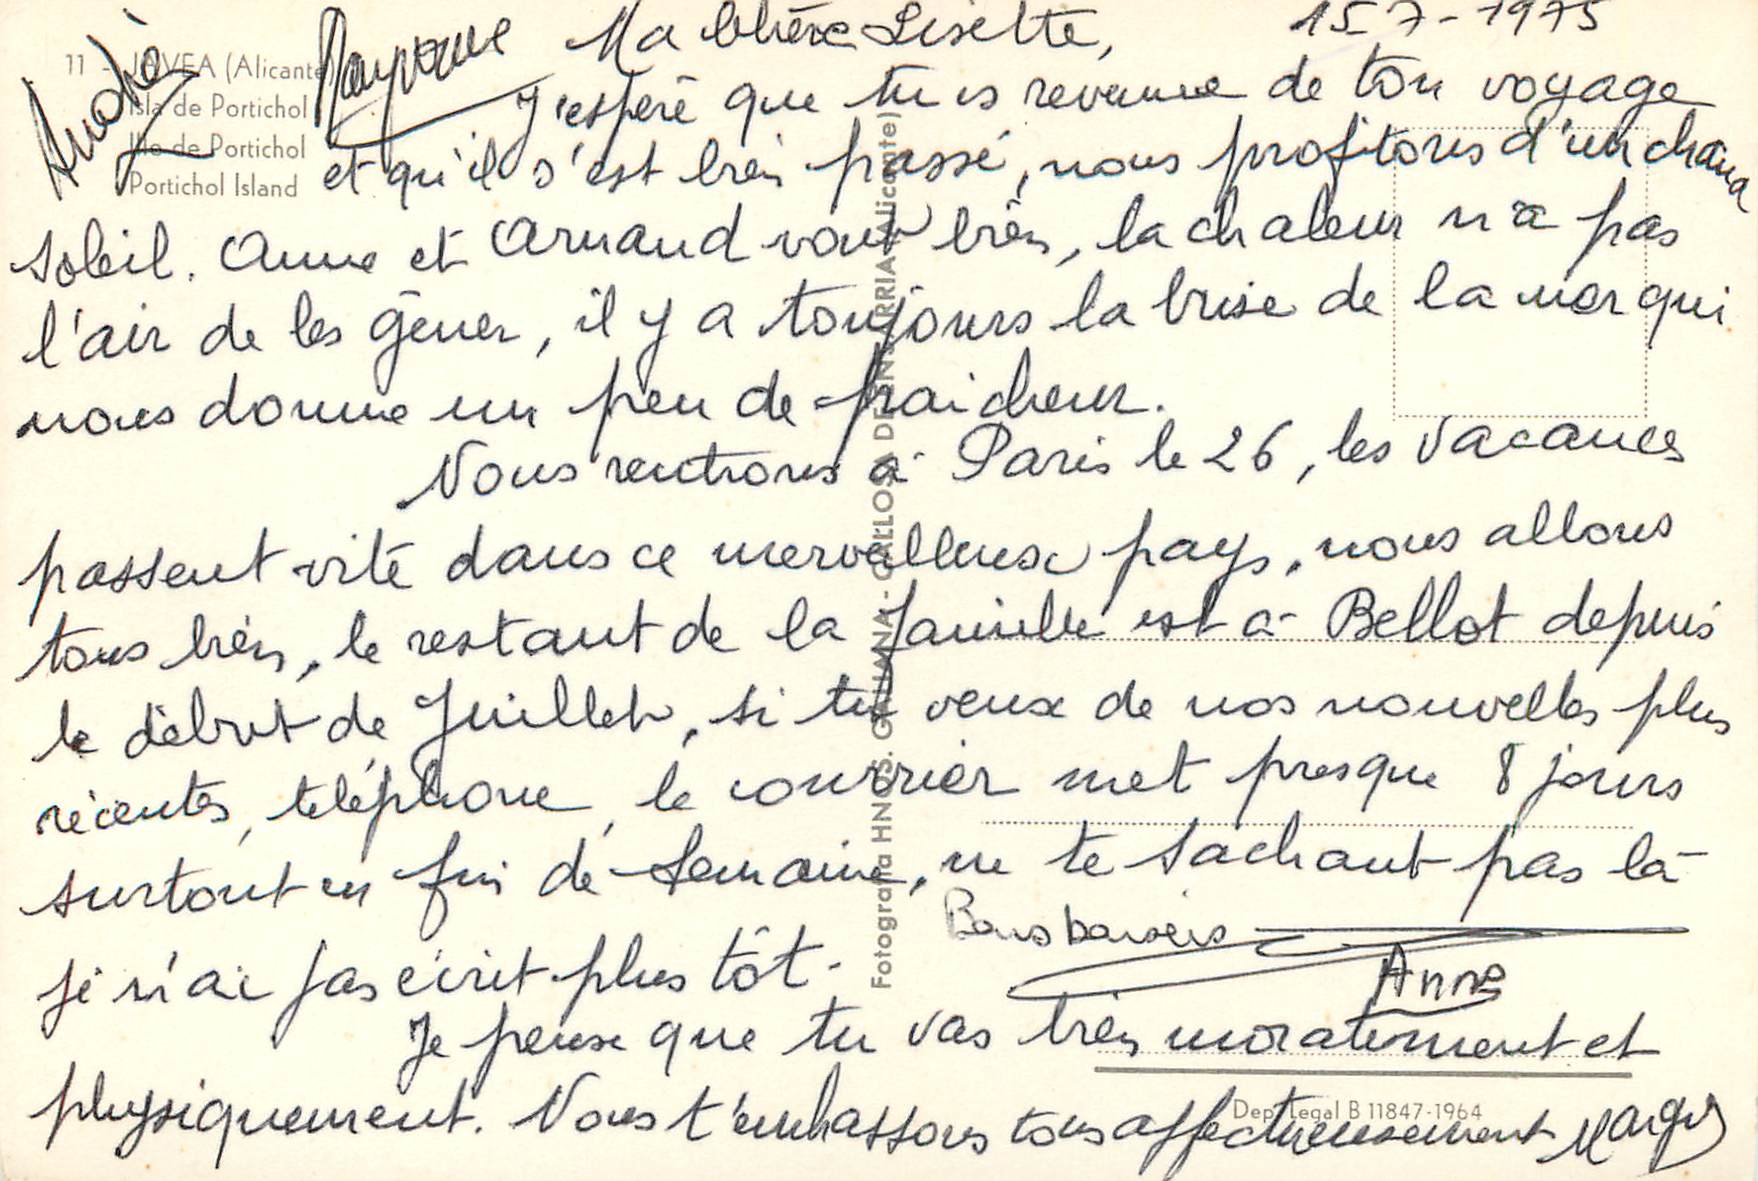 15-7-1975
11 - JAVEA (Alicante)
Isla de Portichol
Ille de Portichol
Portichol Island
André
Raymonde
Ma chère Lisette,
J'espère que tu es revenue de ton voyage
et qu'il s'est bien passé, nous profitons d'un chaud
soleil. Anne et Arnaud vont bien, la chaleur n'a pas
l'air de les gêner, il y a toujours la brise de la mer qui
nous donne un peu de fraicheur.
Nous rentrons à Paris le 26, les vacances
passent vite dans ce merveilleux pays, nous allons
tous bien, le restant de la famille est à Bellot depuis
le début de Juillet, si tu veux de nos nouvelles plus
récentes, téléphone, le courrier met presque 8 jours
surtout en fin de semaine, ne te sachant pas là
je n'ai pas écrit plus tôt.
Bons baisers
Anne
Je pense que tu vas bien moralement et
physiquement. Nous t'embrassons tous affectueusement
Fotografía HNOS. GALIANA - CALLOSA DE ENSARRIA (Alicante)
Dep. Legal B 11847-1964